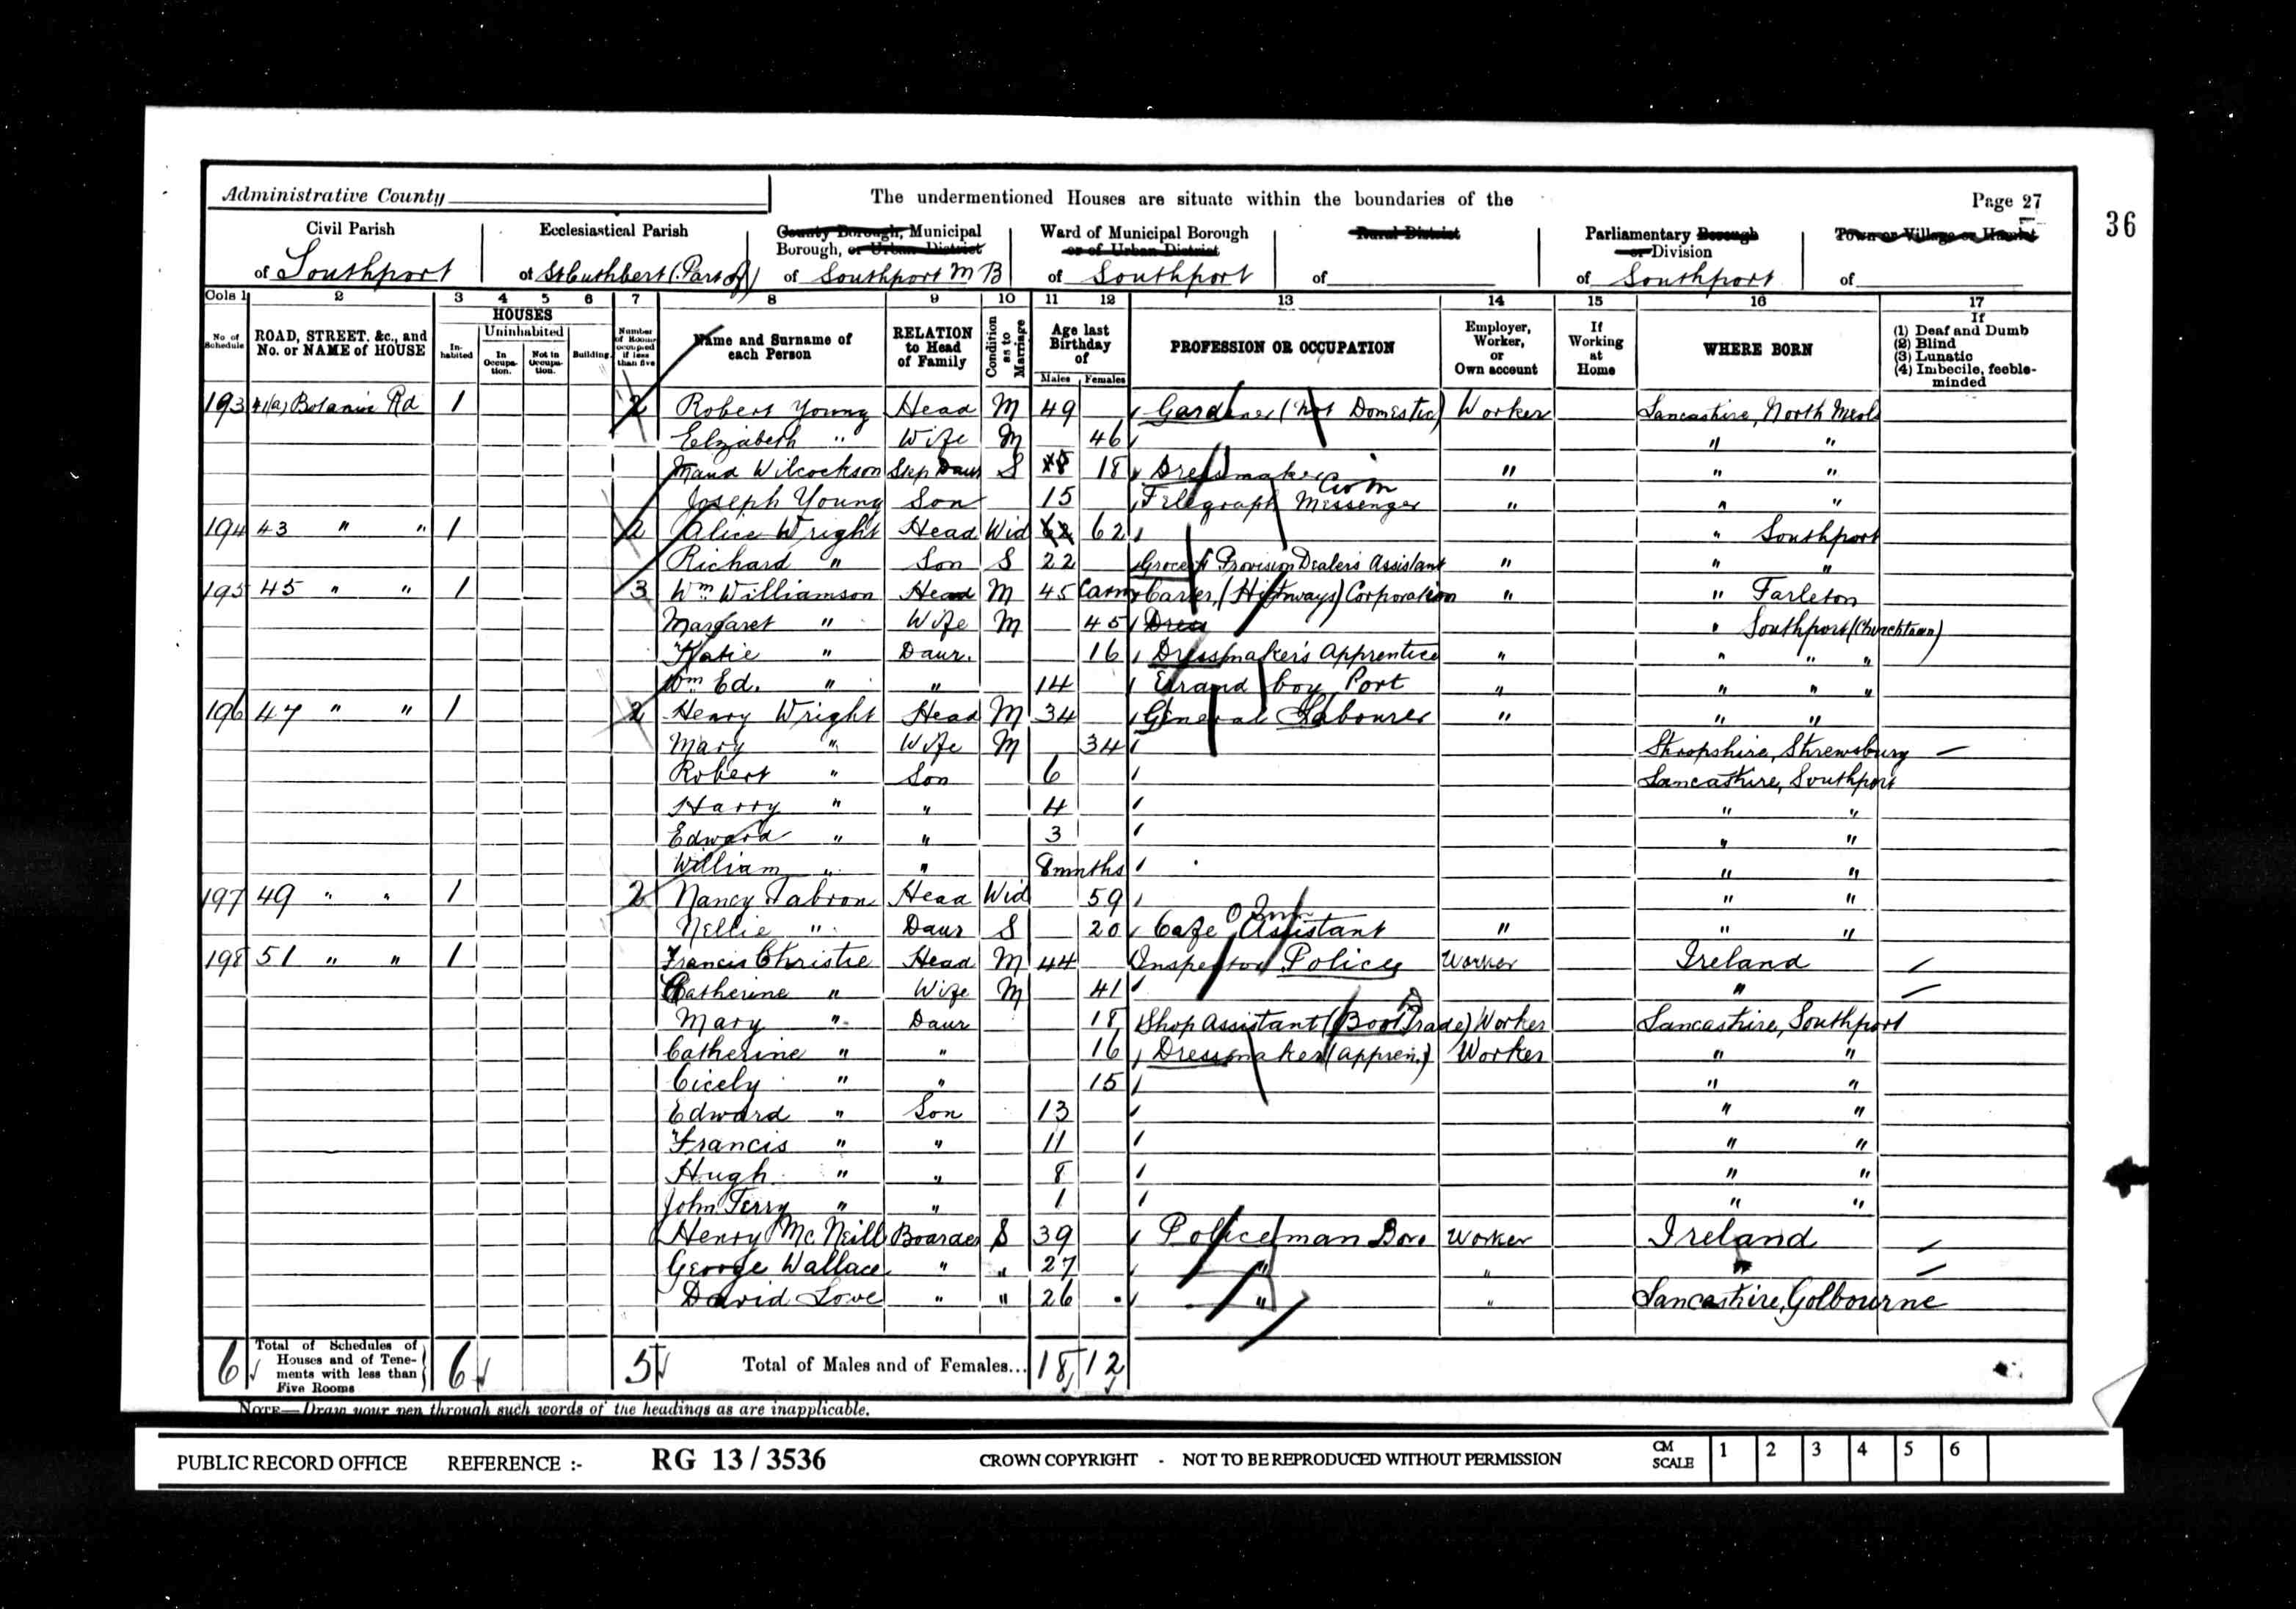 Administrative County
The undermentioned Houses are situate within the boundaries of the
Page 27
36
Civil Parish
of Southport
Ecclesiastical Parish
of St Cuthbert (Part of)
County Borough, Municipal
Borough, or Urban District
of Southport M B
Ward of Municipal Borough
or of Urban District
of Southport
Rural District
of
Parliamentary Borough
or Division
of Southport
Town or Village or Hamlet
of
Cols 1 2 3 4 5 6 7 8 9 10 11 12 13 14 15 16 17
No of Schedule
ROAD, STREET. &c., and No. or NAME of HOUSE
HOUSES
Inhabited
Uninhabited
In Occupation.
Not in Occupation.
Building.
Number of Rooms occupied if less than five
Name and Surname of each Person
RELATION to Head of Family
Condition as to Marriage
Age last Birthday of
Males Females
PROFESSION OR OCCUPATION
Employer, Worker, or Own account
If Working at Home
WHERE BORN
If
(1) Deaf and Dumb
(2) Blind
(3) Lunatic
(4) Imbecile, feeble-minded
193 41(a) Botanic Rd 1 2 Robert Young Head M 49 Gardener (Not Domestic) Worker Lancashire, North Meols
Elizabeth " Wife M 46 " "
Maud Wilcockson Step Daur S 18 18 Dressmaker " " "
Joseph Young Son 15 Telegraph Messenger " " "
194 43 " " 1 2 Alice Wright Head Wid 62 62 " Southport
Richard " Son S 22 Grocer & Provision Dealers Assistant " " "
195 45 " " 1 3 Wm Williamson Head M 45 Carter, (Highways) Corporation " " Tarleton
Margaret " Wife M 45 Dress " Southport (Churchtown)
Katie " Daur. 16 Dressmaker's Apprentice " " " "
Wm Ed. " " 14 Errand boy, Port " " " "
196 47 " " 1 2 Henry Wright Head M 34 General Labourer " " "
Mary " Wife M 34 Shropshire, Shrewsbury
Robert " Son 6 Lancashire, Southport
Harry " " 4 " "
Edward " " 3 " "
William " " 8 mnths " "
197 49 " " 1 2 Nancy Tabron Head Wid 59 " "
Nellie " Daur S 20 Cafe Assistant " " "
198 51 " " 1 Francis Christie Head M 44 Inspector Police Worker Ireland
Catherine " Wife M 41 "
Mary " Daur 18 Shop Assistant (Boot Trade) Worker Lancashire, Southport
Catherine " " 16 Dressmaker (appren.) Worker " "
Cicely " " 15 " "
Edward " Son 13 " "
Francis " " 11 " "
Hugh " " 8 " "
John Terry " " 1 " "
Henry McNeill Boarder S 39 Policeman Boro Worker Ireland
George Wallace " " 27 " " "
David Lowe " " 26 " " Lancashire, Golbourne
6 Total of Schedules of Houses and of Tenements with less than Five Rooms 6 5 Total of Males and of Females... 18 12
NOTE—Draw your pen through such words of the headings as are inapplicable.
PUBLIC RECORD OFFICE REFERENCE :- RG 13 / 3536 CROWN COPYRIGHT - NOT TO BE REPRODUCED WITHOUT PERMISSION CM SCALE 1 2 3 4 5 6